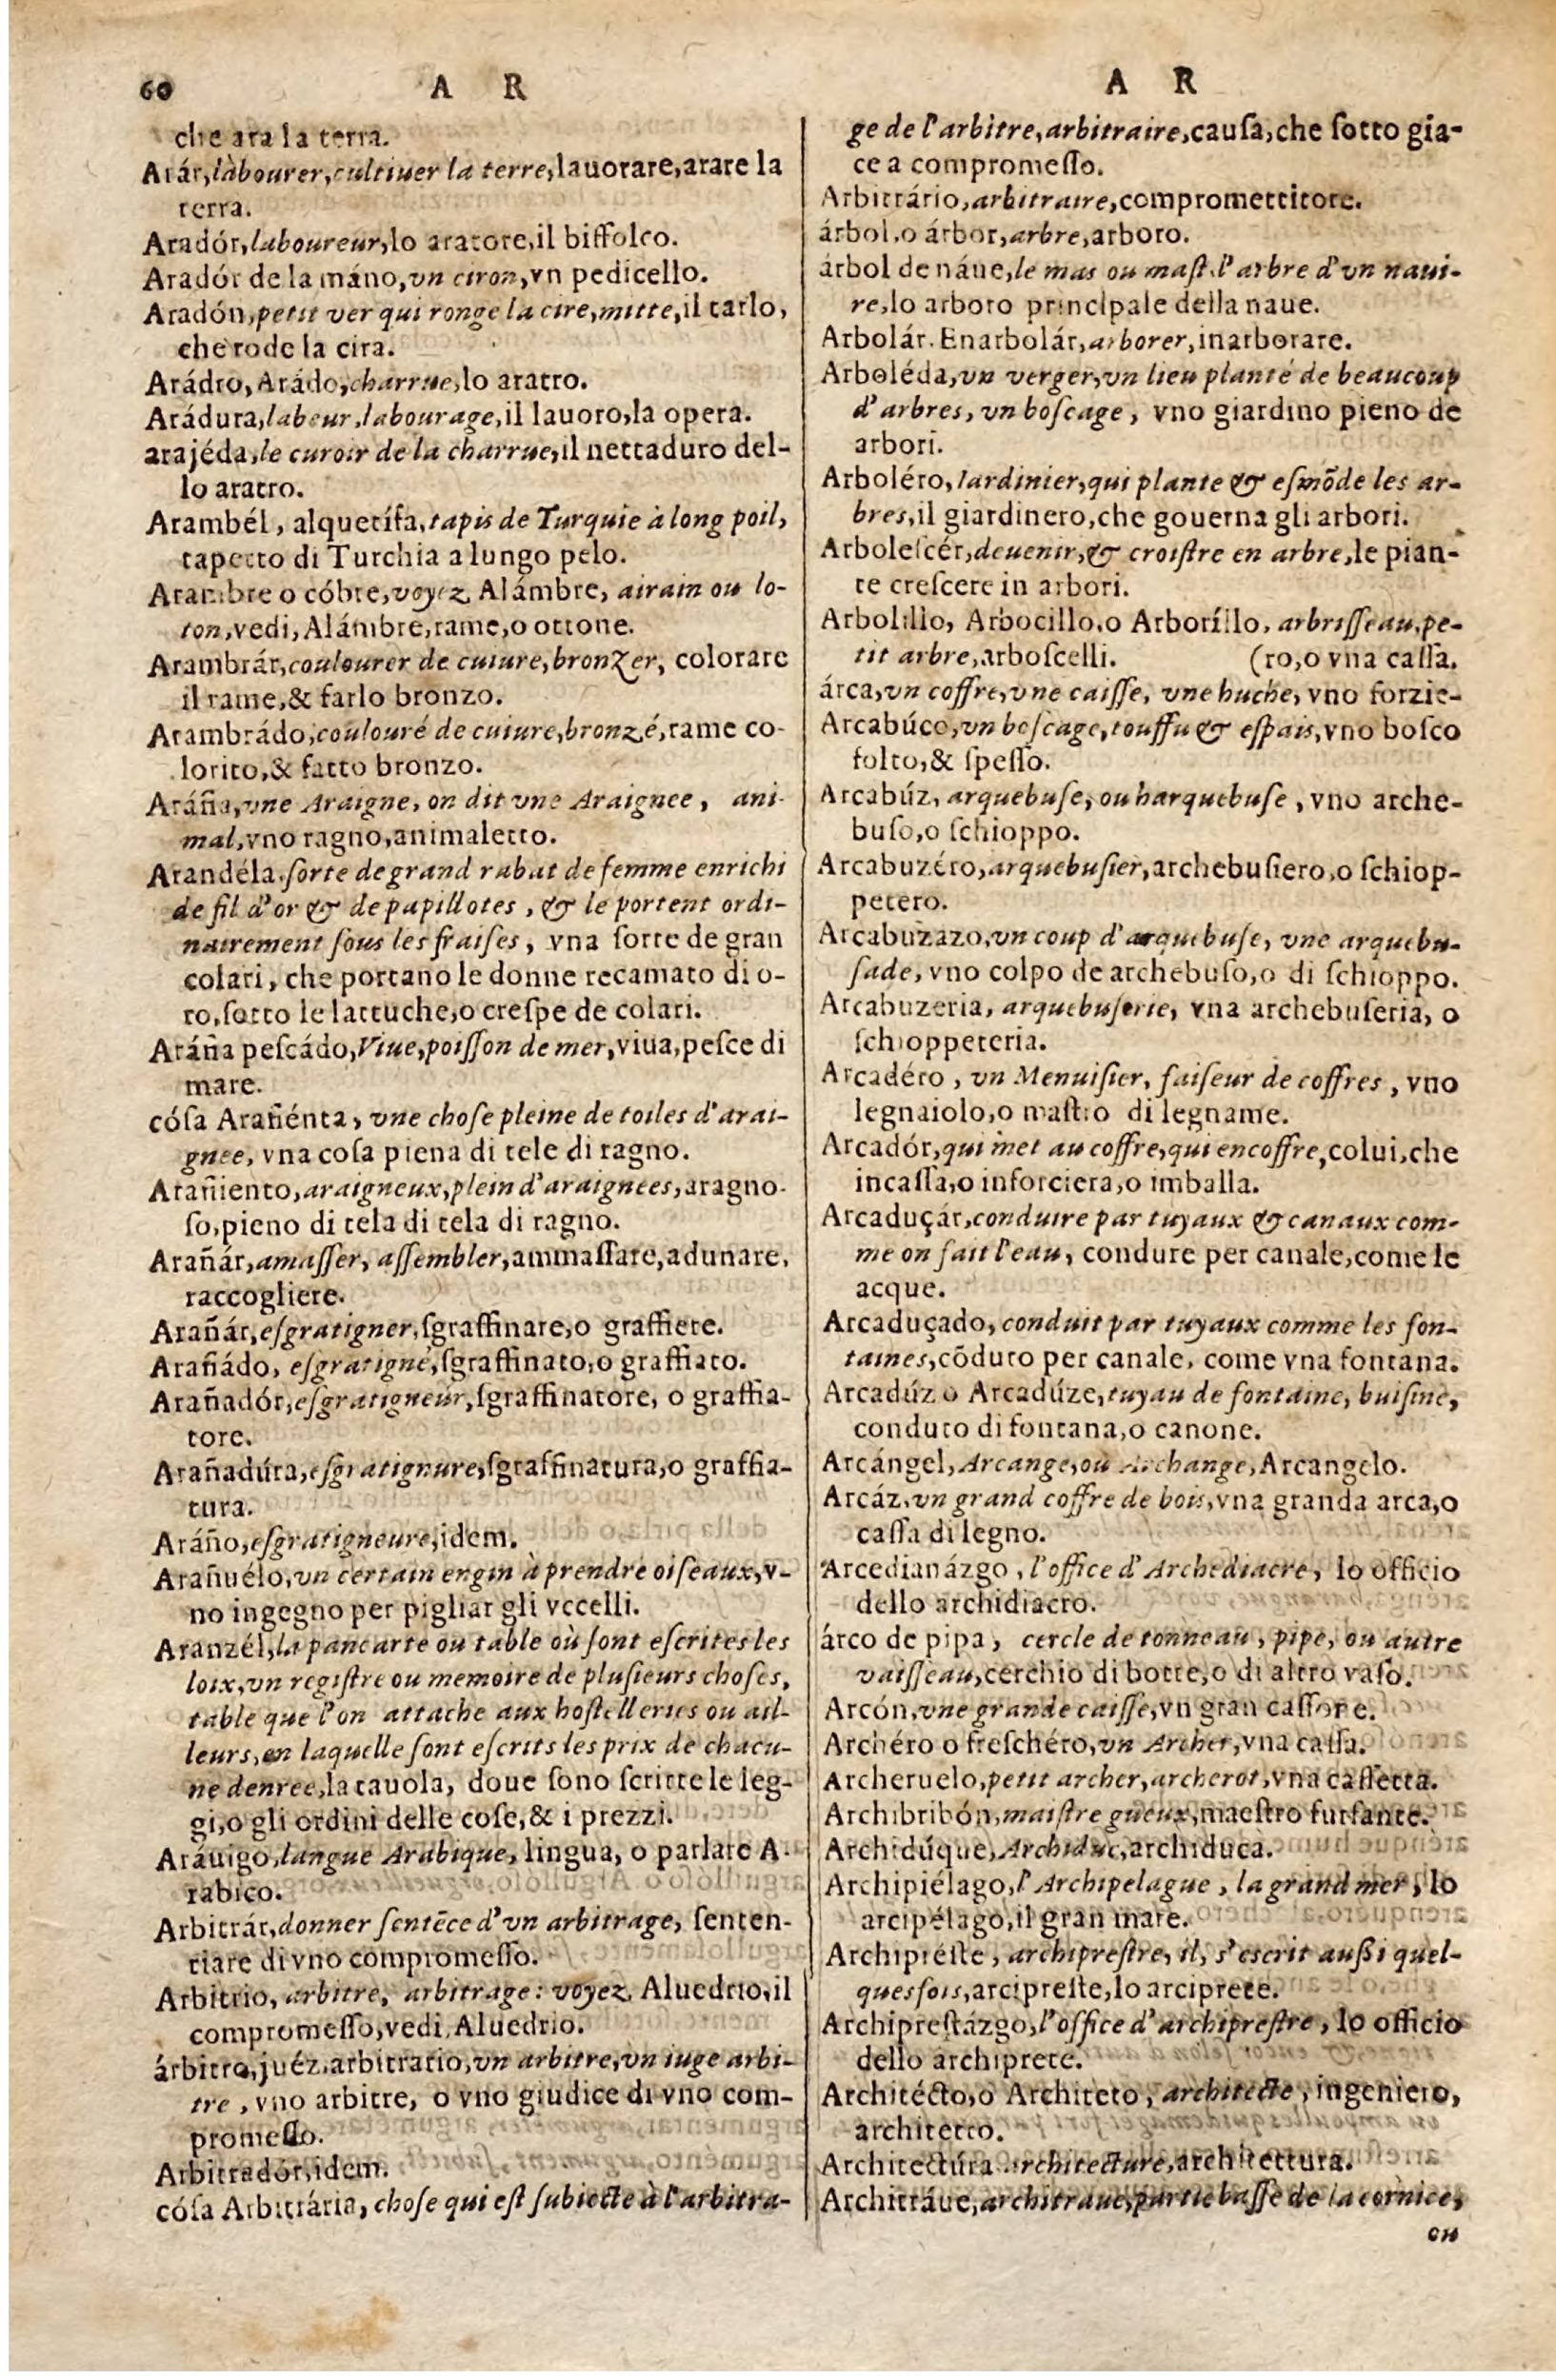 60 A R
che ara la terra.
Arár, làbourer, cultiuer la terre, lauorare, arare la
terra.
Aradór, laboureur, lo aratore, il biffolco.
Aradór de la máno, vn ciron, vn pedicello.
Aradón, petit ver qui ronge la cire, mitte, il tarlo,
che rode la cira.
Arádro, Arádo, charrue, lo aratro.
Arádura, labeur, labourage, il lauoro, la opera.
arajéda, le curoir de la charrue, il nettaduro del-
lo aratro.
Arambél, alquetífa, tapis de Turquie à long poil,
tapetto di Turchia a lungo pelo.
Arambre o cóbre, voyez Alámbre, airain ou lo-
ton, vedi, Alámbre, rame, o ottone.
Arambrár, coulourer de cuiure, bronzer, colorare
il rame, & farlo bronzo.
Arambrádo, coulouré de cuiure, bronzé, rame co-
lorito, & fatto bronzo.
Aráña, vne Araigne, on dit vne Araignee, ani-
mal, vno ragno, animaletto.
Arandéla, ſorte de grand rabat de femme enrichi
de fil d'or & de papillotes, & le portent ordi-
nairement ſous les fraiſes, vna ſorte de gran
colari, che portano le donne recamato di o-
ro, ſotto le lattuche, o creſpe de colari.
Aráña peſcádo, Viue, poiſſon de mer, viua, peſce di
mare.
cóſa Arañénta, vne choſe pleine de toiles d'arai-
gnee, vna coſa piena di tele di ragno.
Arañiento, araigneux, plein d'araignees, aragno-
ſo, pieno di tela di tela di ragno.
Arañár, amaſſer, aſſembler, ammaſſare, adunare,
raccogliere.
Arañár, eſgratigner, ſgraffinare, o graffiere.
Arañádo, eſgratigné, ſgraffinato, o graffiato.
Arañadór, eſgratigneúr, ſgraffinatore, o graffia-
tore.
Arañadúra, eſgratignure, ſgraffinatura, o graffia-
tura.
Aráño, eſgratigneure, idem.
Arañuélo, vn certain engin à prendre oiſeaux, v-
no ingegno per pigliar gli vccelli.
Aranzél, la pancarte ou table où ſont eſcrites les
loix, vn regiſtre ou memoire de pluſieurs choſes,
table que l'on attache aux hoſtelleries ou ail-
leurs, en laquelle ſont eſcrits les prix de chacu-
ne denree, la tauola, doue ſono ſcritte le leg-
gi, o gli ordini delle coſe, & i prezzi.
Aráuigo, langue Arabique, lingua, o parlare A-
rabico.
Arbitrár, donner ſentẽce d'vn arbitrage, ſenten-
tiare di vno compromeſſo.
Arbitrio, arbitre, arbitrage: voyez Aluedrio, il
compromeſſo, vedi, Aluedrio.
árbitro, juéz, arbitrario, vn arbitre, vn iuge arbi-
tre, vno arbitre, o vno giudice di vno com-
promeſſo.
Arbitradór, idem.
cóſa Arbitrária, choſe qui eſt ſubiecte à l'arbitra-
A R
ge de l'arbitre, arbitraire, cauſa, che ſotto gia-
ce a compromeſſo.
Arbitrário, arbitraire, compromettitore.
árbol, o árbor, arbre, arboro.
árbol de náue, le mas ou maſt, l'arbre d'vn naui-
re, lo arboro principale della naue.
Arbolár. Enarbolár, arborer, inarborare.
Arboléda, vn verger, vn lieu planté de beaucoup
d'arbres, vn boſcage, vno giardino pieno de
arbori.
Arboléro, Iardinier, qui plante & eſmõde les ar-
bres, il giardinero, che gouerna gli arbori.
Arboleſcér, deuenir, & croiſtre en arbre, le pian-
te creſcere in arbori.
Arbolillo, Arbocillo, o Arboríllo, arbriſſeau, pe-
tit arbre, arboſcelli. (ro, o vna caſſa.
árca, vn coffre, vne caiſſe, vne huche, vno forzie-
Arcabúco, vn boſcage, touffu & eſpais, vno boſco
folto, & ſpeſſo.
Arcabúz, arquebuſe, ou harquebuſe, vno arche-
buſo, o ſchioppo.
Arcabuzéro, arquebuſier, archebuſiero, o ſchiop-
petero.
Arcabuzazo, vn coup d'arquebuſe, vne arquebu-
ſade, vno colpo de archebuſo, o di ſchioppo.
Arcabuzeria, arquebuſerie, vna archebuſeria, o
ſchioppeteria.
Arcadéro, vn Menuiſier, faiſeur de coffres, vno
legnaiolo, o maſtro di legname.
Arcadór, qui met au coffre, qui encoffre, colui, che
incaſſa, o inforciera, o imballa.
Arcaduçár, conduire par tuyaux & canaux com-
me on fait l'eau, condure per canale, come le
acque.
Arcaduçado, conduit par tuyaux comme les fon-
taines, cõduto per canale, come vna fontana.
Arcadúz o Arcadúze, tuyau de fontaine, buiſine,
conduto di fontana, o canone.
Arcángel, Arcange, ou Archange, Arcangelo.
Arcáz, vn grand coffre de bois, vna granda arca, o
caſſa di legno.
Arcedianázgo, l'office d'Archediacre, lo officio
dello archidiacro.
árco de pipa, cercle de tonneau, pipe, ou autre
vaiſſeau, cerchio di botte, o di altro vaſo.
Arcón, vne grande caiſſe, vn gran caſſone.
Archéro o freſchéro, vn Archer, vna caſſa.
Archeruelo, petit archer, archerot, vna caſſetta.
Archibribón, maiſtre gueux, maeſtro furfante.
Archidúque, Archiduc, archiduca.
Archipiélago, l'Archipelague, la grand mer, lo
arcipélago, il gran mare.
Archipréſte, archipreſtre, il, s'eſcrit auſſi quel-
quesfois, arcipreſte, lo arciprete.
Archipreſtázgo, l'office d'archipreſtre, lo officio
dello archiprete.
Architécto, o Architeto, architecte, ingeniero,
architetto.
Architectúra architecture, architettura.
Architráue, architraue, partie baſſe de la cornice,
ou